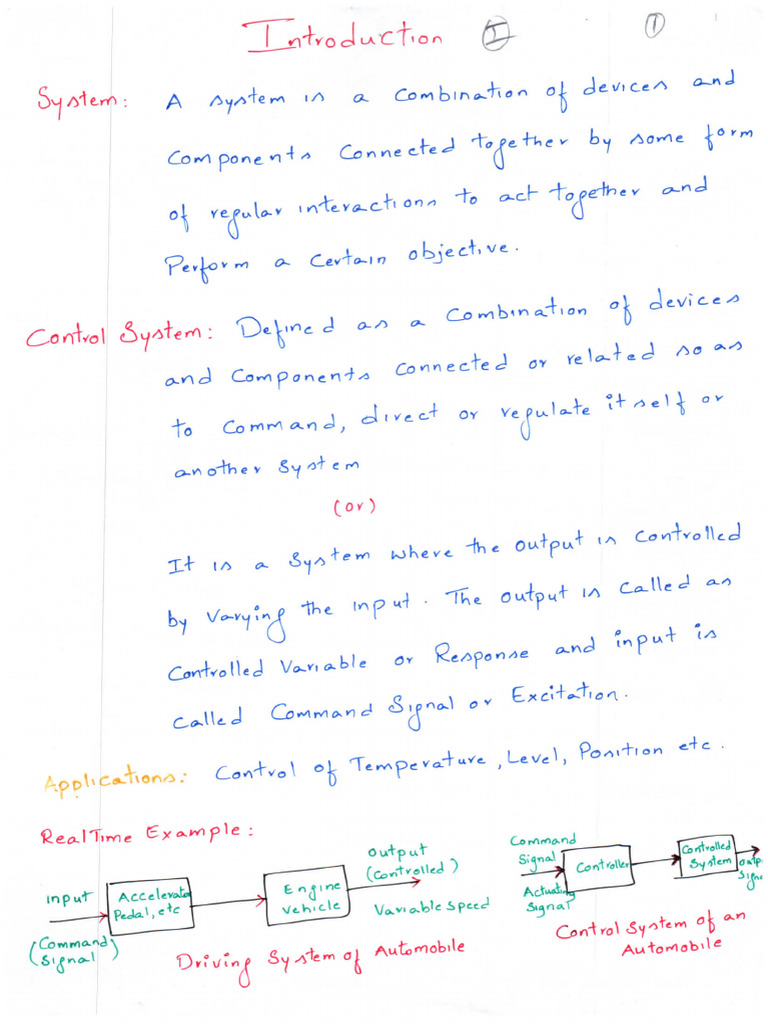 Introduction I 1
System: A system is a combination of devices and
Components Connected together by some form
of regular interactions to act together and
Perform a certain objective.
Control System: Defined as a Combination of devices
and Components connected or related so as
to command, direct or regulate itself or
another system
(or)
It is a system where the output is controlled
by varying the input. The output is called as
Controlled Variable or Response and input is
called Command Signal or Excitation.
Applications: Control of Temperature, Level, Position etc.
RealTime Example:
input
(Command Signal)
Accelerator
Pedal, etc
Engine
Vehicle
Output
(Controlled)
Variable Speed
Driving System of Automobile
Command
Signal
Actuating
Signal
Controller
Controlled
System
Control System of an
Automobile